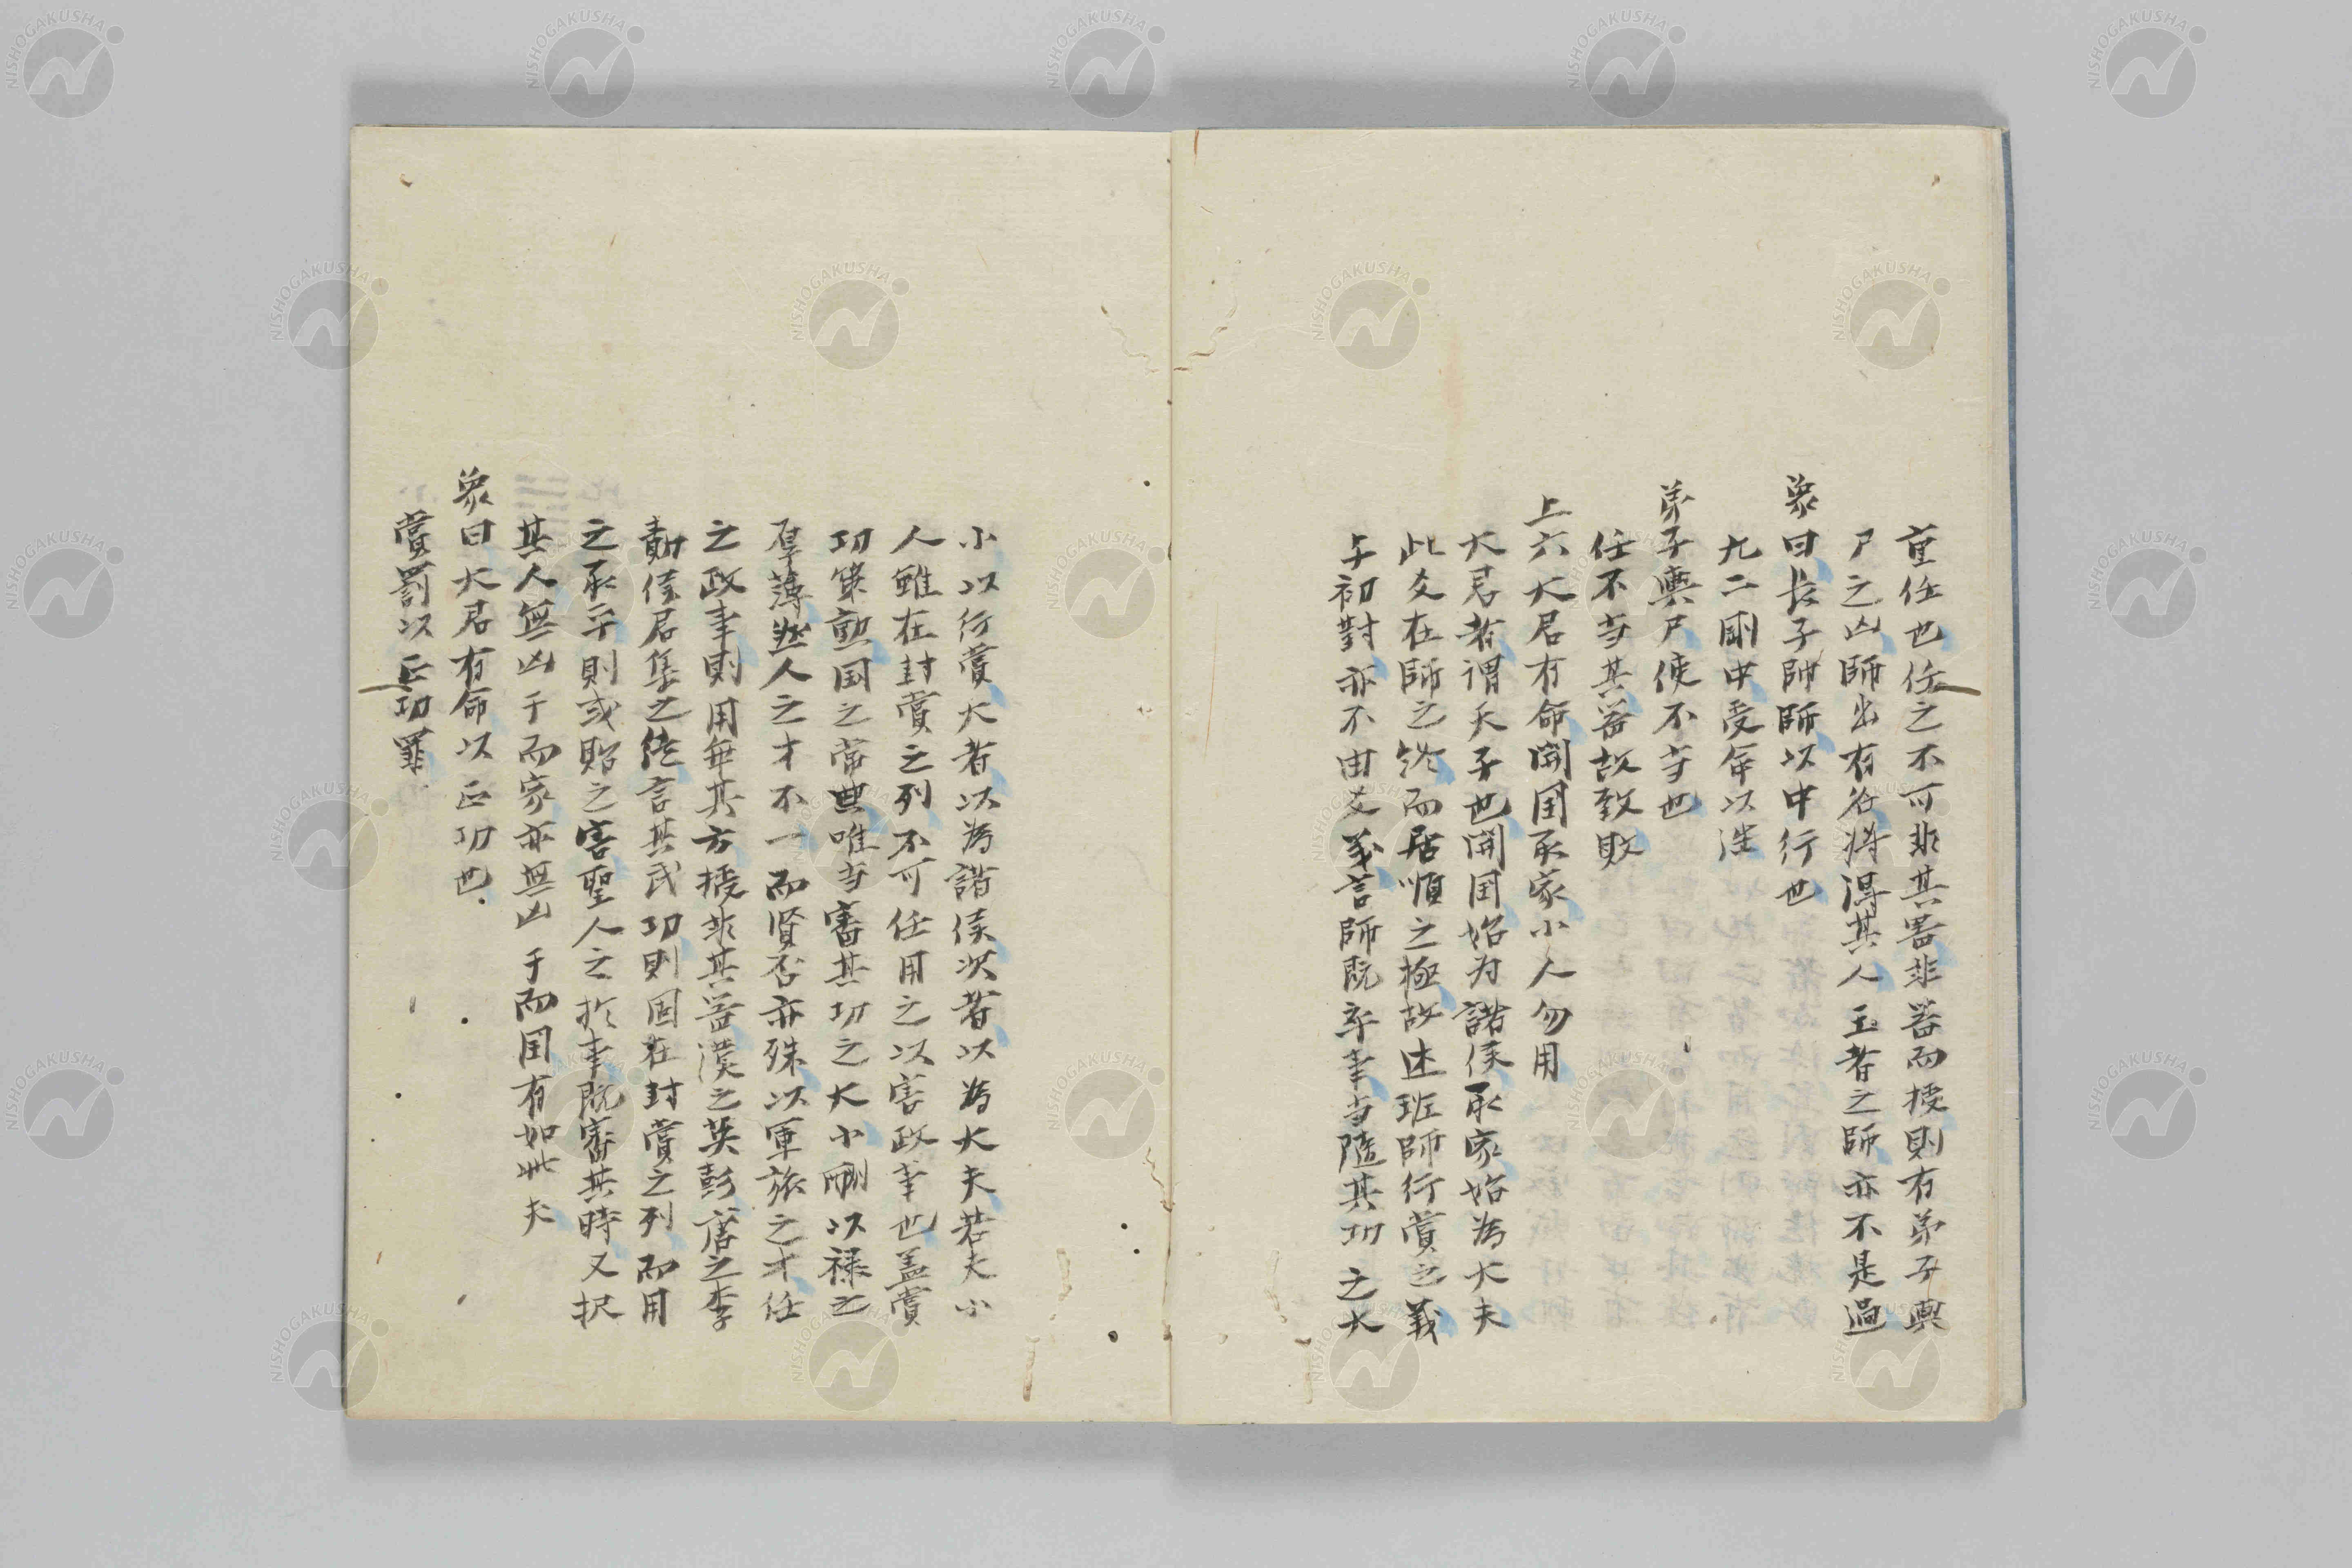 重任也任之不可非其器非器而授則有弟子輿
尸之凶師出有名将得其人王者之師亦不是過
象曰長子帥師以中行也
九二剛中受任以
弟子輿尸使不当也
任不当其器故致敗
上六大君有命開国承家小人勿用
大君者謂天子也開国始为諸侯承家始為大夫
此爻在師之終而居順之極故述班師行賞之義
与初對亦不由爻義言師既卒事当隨其功之大
小以行賞大者以為諸侯次者以為大夫若夫小
人雖在封賞之列不可任用之以害政事也盖賞
功策勲国之常典唯当審其功之大小剛以禄之
厚薄然人之才不一而賢否亦殊以軍旅之才任
之政事則用無其方授非其器漢之英彭唐之李
勣侯君集之徒言其武功則固在封賞之列而用
之承平則或貽之害聖人之於事既審其時又択
其人無凶于而家亦無凶于而国有如此夫
象曰大君有命以正功也
賞罰以正功罪
NISHOGAKUSHA